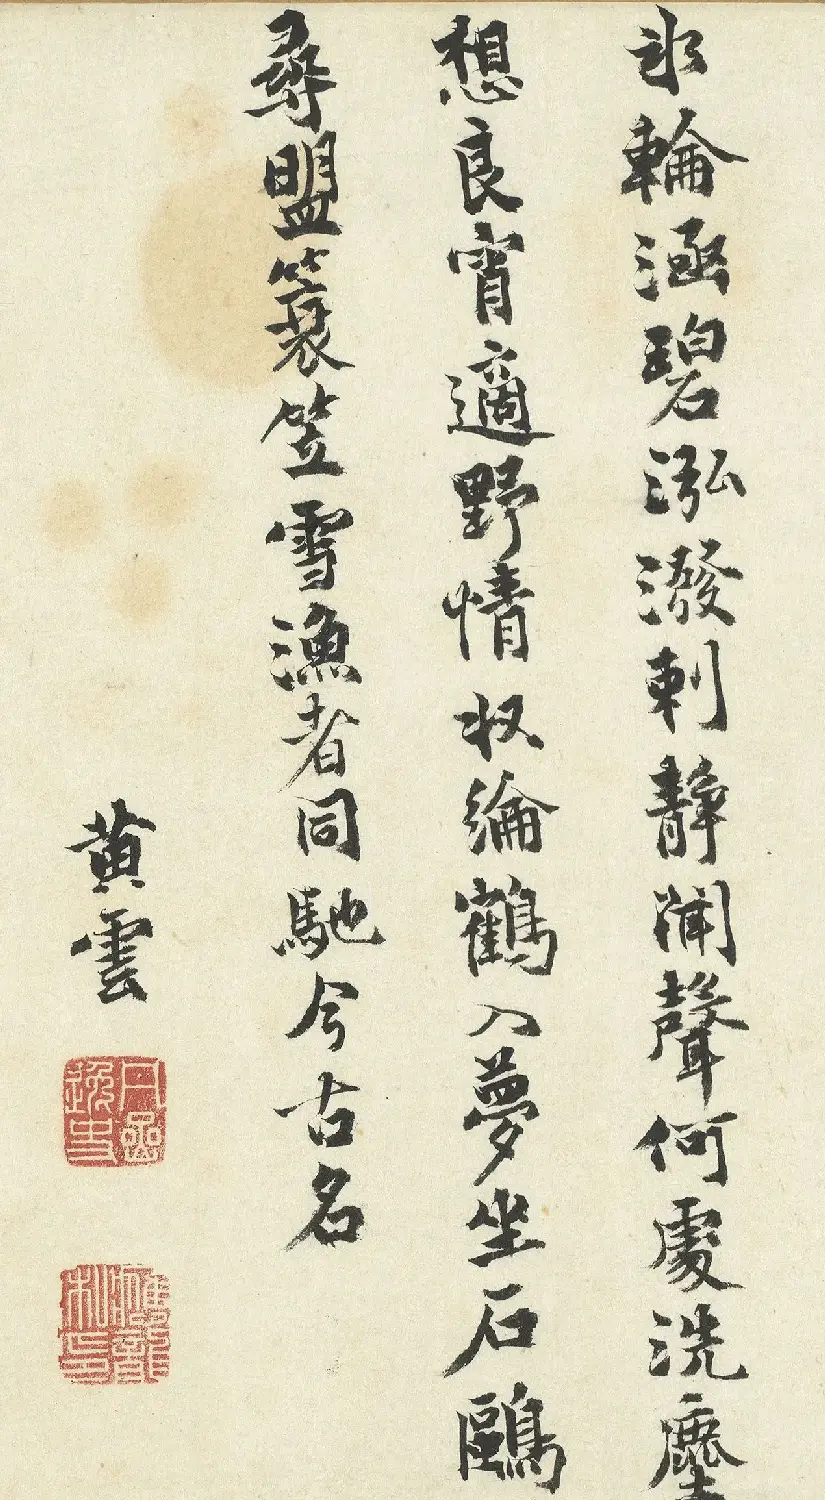 冰輪涵碧泓潑剌靜聞聲何處洗塵
想良宵適野情收綸鶴入夢坐石鷗
尋盟簑笠雪漁者同馳今古名
黃雲